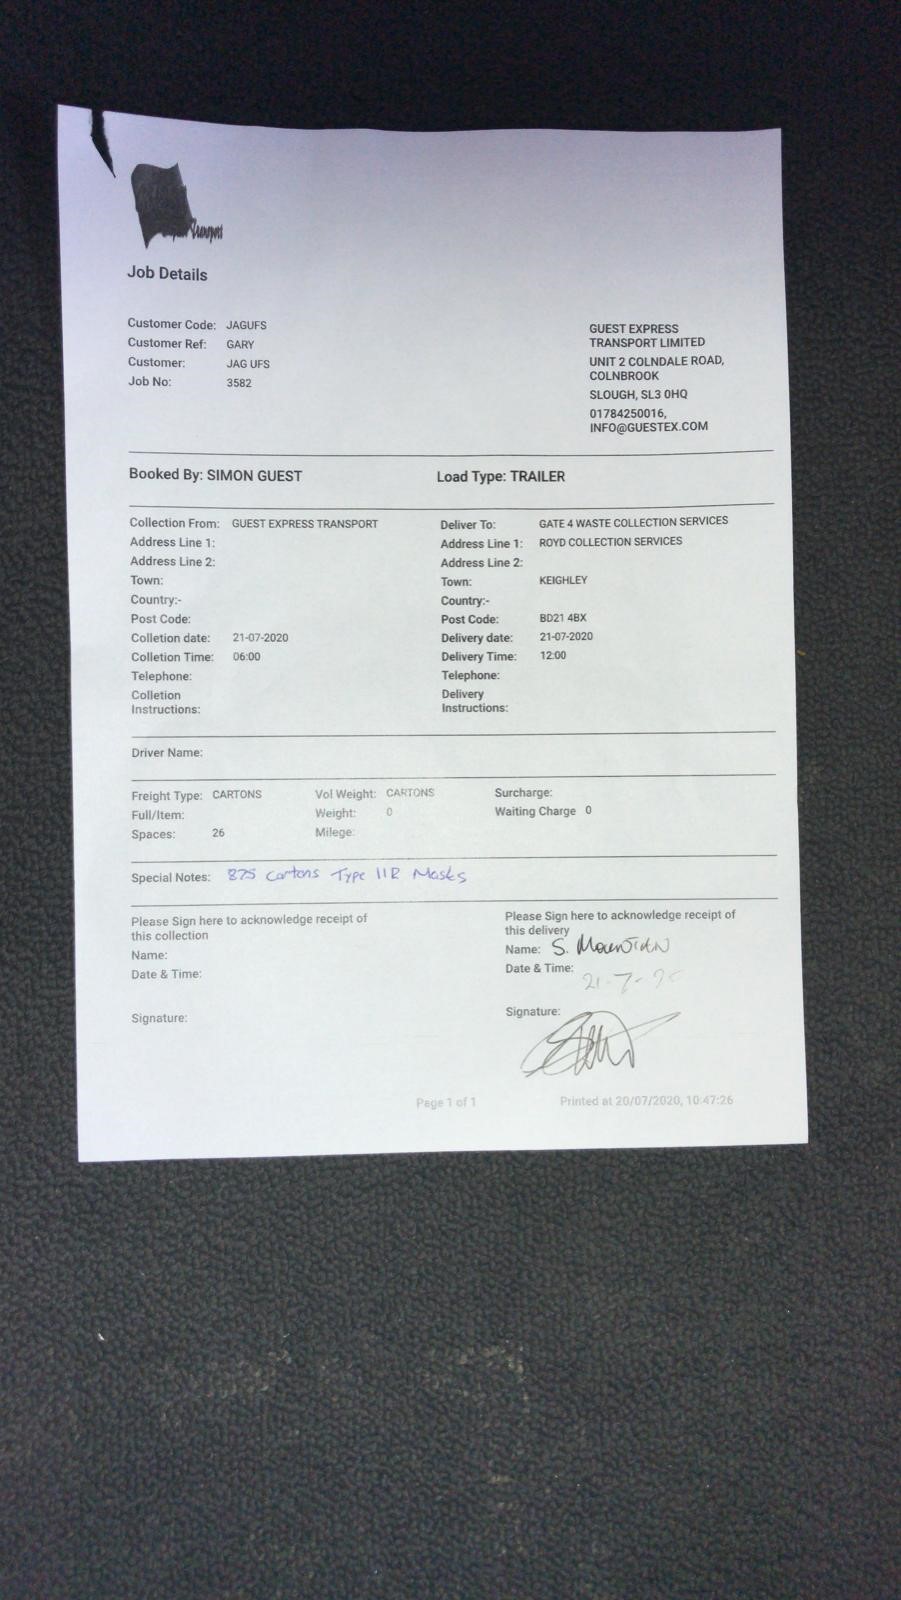 Transport
Job Details
Customer Code: JAGUFS
Customer Ref: GARY
Customer: JAG UFS
Job No: 3582
GUEST EXPRESS
TRANSPORT LIMITED
UNIT 2 COLNDALE ROAD,
COLNBROOK
SLOUGH, SL3 0HQ
01784250016,
INFO@GUESTEX.COM
Booked By: SIMON GUEST
Load Type: TRAILER
Collection From: GUEST EXPRESS TRANSPORT
Address Line 1:
Address Line 2:
Town:
Country:-
Post Code:
Colletion date: 21-07-2020
Colletion Time: 06:00
Telephone:
Colletion
Instructions:
Deliver To: GATE 4 WASTE COLLECTION SERVICES
Address Line 1: ROYD COLLECTION SERVICES
Address Line 2:
Town: KEIGHLEY
Country:-
Post Code: BD21 4BX
Delivery date: 21-07-2020
Delivery Time: 12:00
Telephone:
Delivery
Instructions:
Driver Name:
Freight Type: CARTONS Vol Weight: CARTONS Surcharge:
Full/Item: Weight: 0 Waiting Charge 0
Spaces: 26 Milege:
Special Notes: 875 Cartons Type IIR Masks
Please Sign here to acknowledge receipt of
this collection
Name:
Date & Time:
Signature:
Please Sign here to acknowledge receipt of
this delivery
Name: S. MOUNTAIN
Date & Time:
21-7-20
Signature:
Page 1 of 1
Printed at 20/07/2020, 10:47:26